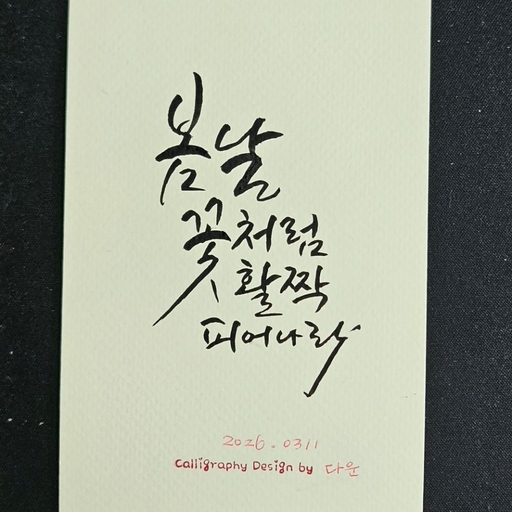 봄날
꽃처럼
활짝
피어나라
2026.0311
Calligraphy Design by 다운